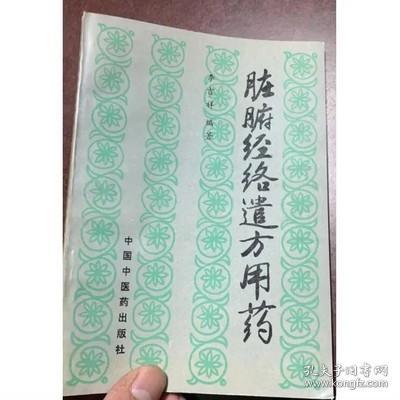 脏腑经络遣方用药
李吉祥 编著
中国中医药出版社
孔夫子旧书网